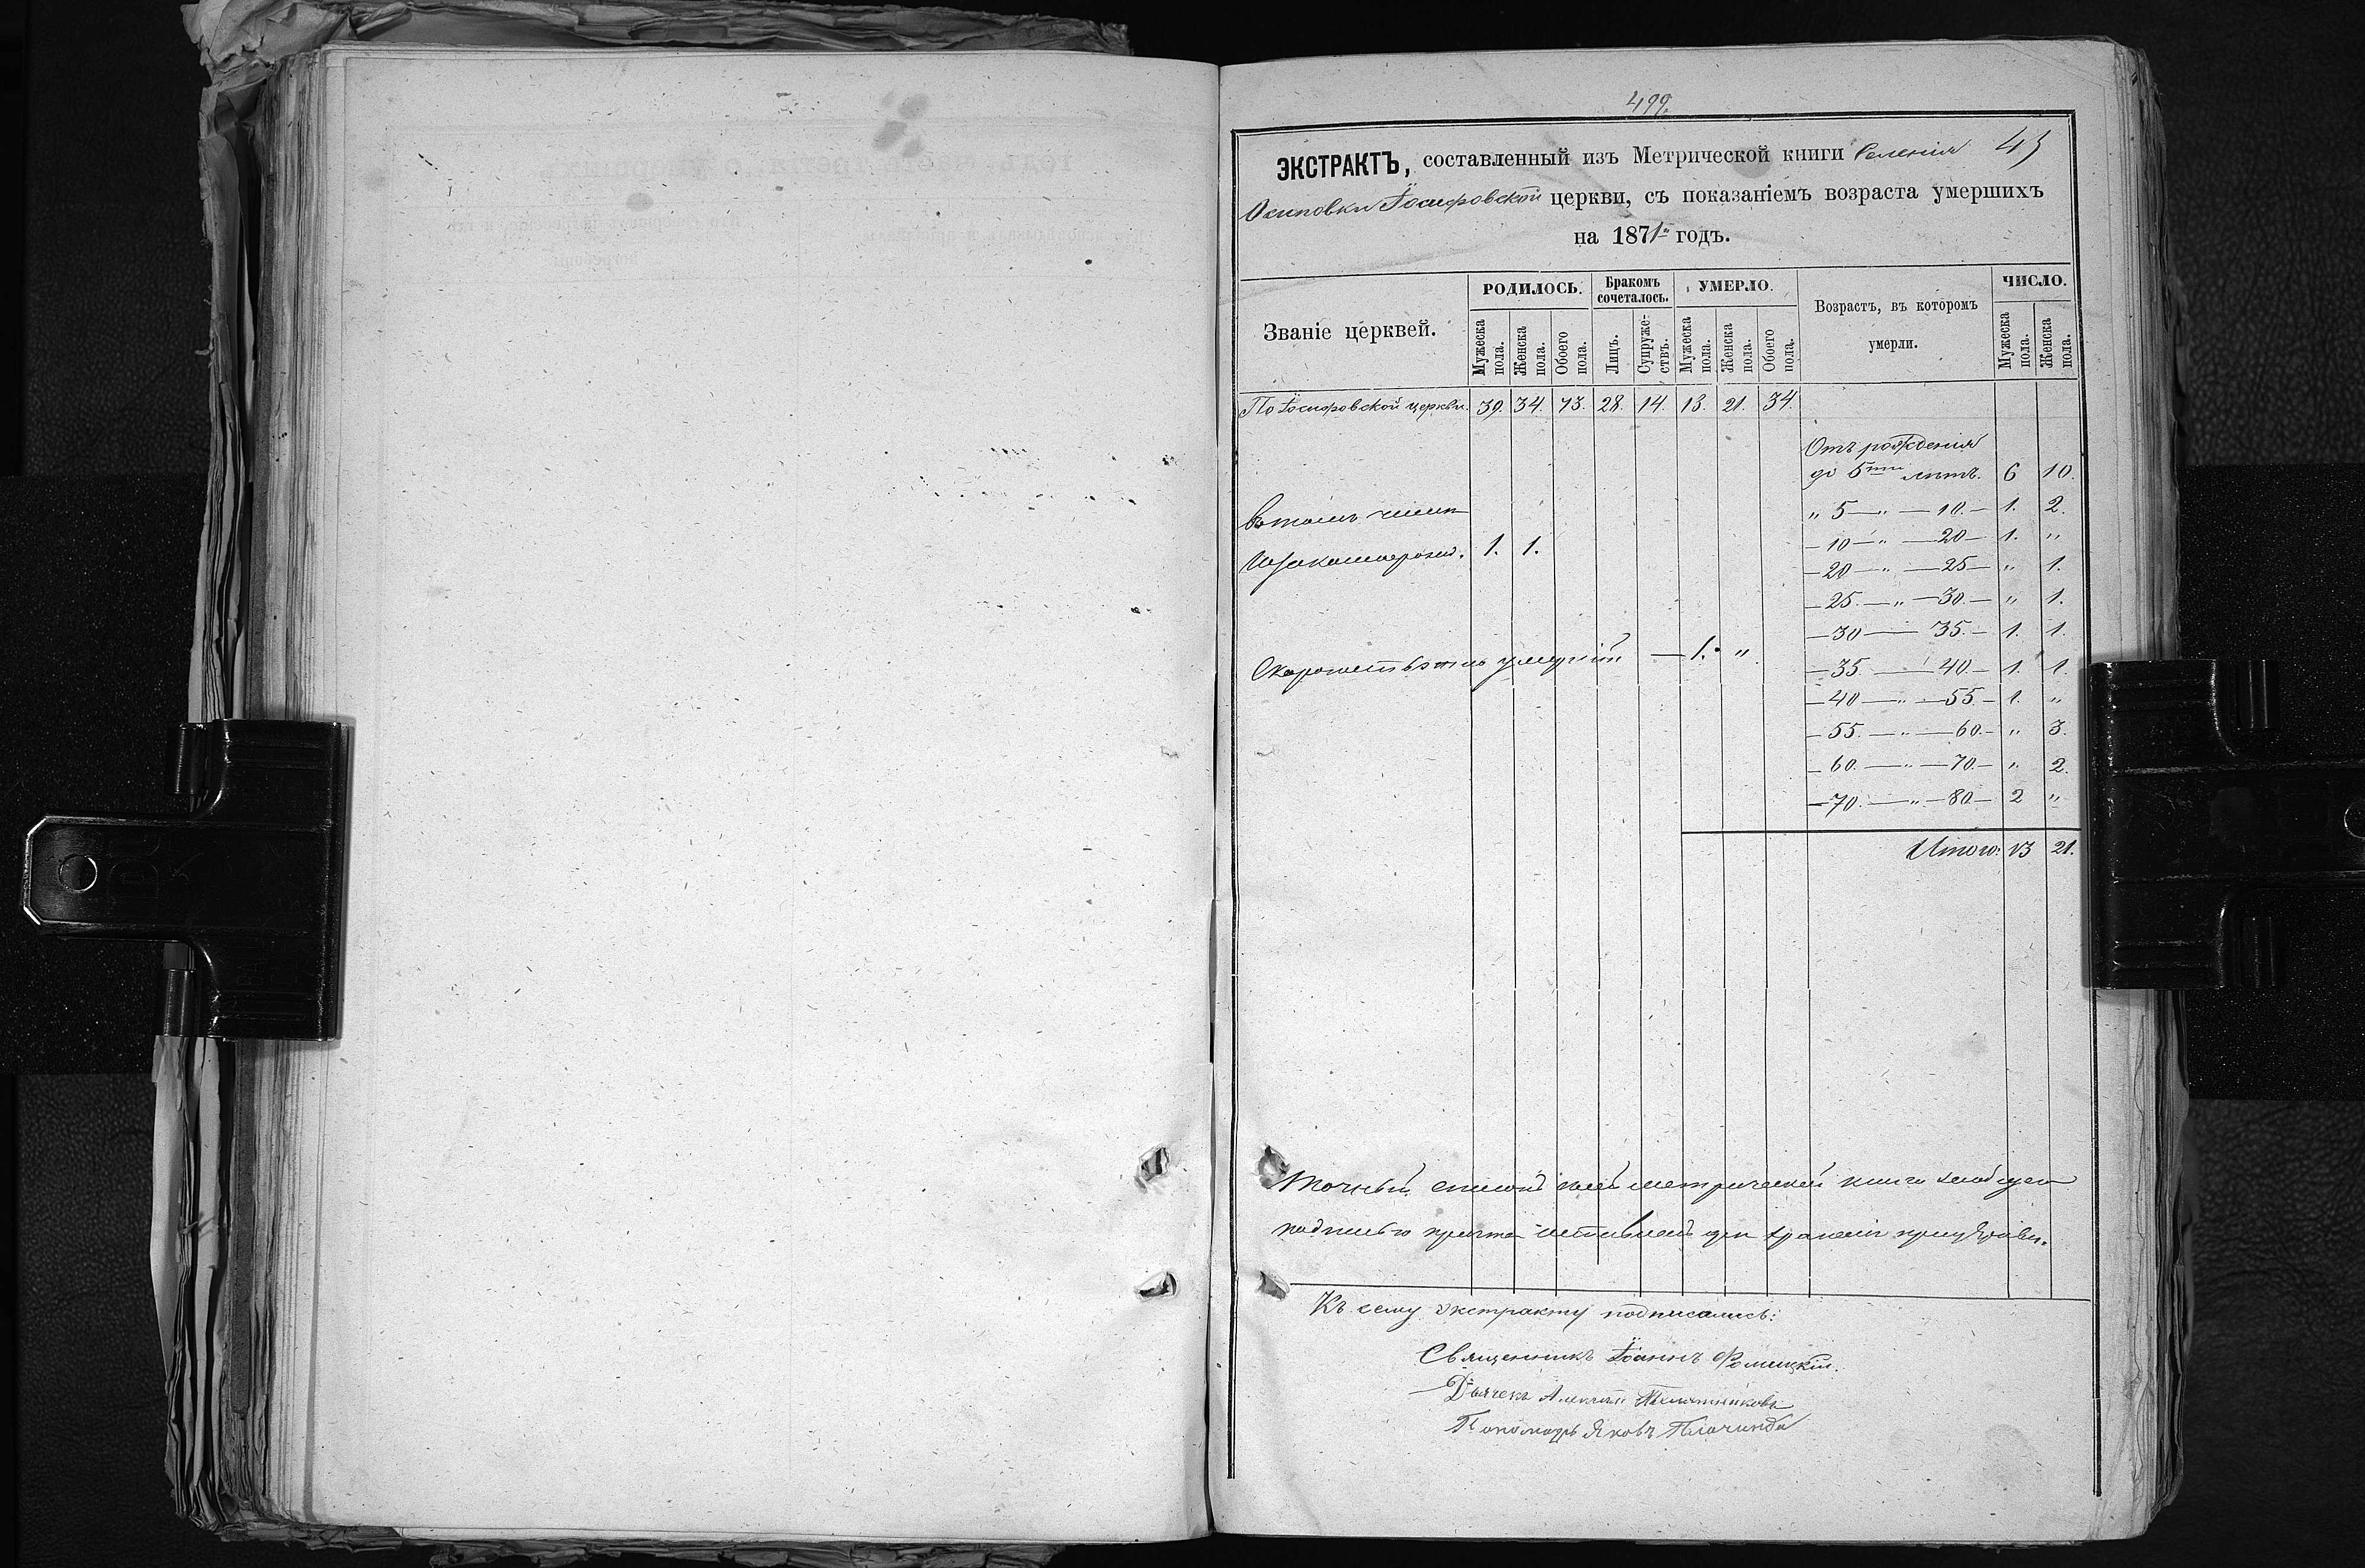 499.
ЭКСТРАКТЪ, составленный изъ Метрической книги Селенія
Осиповки Іосифовской церкви, съ показаніемъ возраста умершихъ
на 1871й годъ.
Званіе церквей.
РОДИЛОСЬ.
Бракомъ сочеталось.
УМЕРЛО.
Возрастъ, въ которомъ умерли.
ЧИСЛО.
Мужеска пола.
Женска пола.
Обоего пола.
Лицъ.
Супружествъ.
Мужеска пола.
Женска пола.
Обоего пола.
Мужеска пола.
Женска пола.
По Іосифовской церкви. 39. 34. 73. 28. 14. 13. 21. 34.
Отъ рожденія
до 5ти лѣтъ. 6 10.
„ 5 — „ — 10. — 1. 2.
Въ томъ числѣ
— 10 — „ — 20 — 1. „
1. 1.
— 20 — „ — 25 — „ 1.
— 25. — „ — 30. — „ 1.
— 30 — 35. — 1. 1.
Скоропостижно умершій — 1. „
— 35. — 40. — 1. 1.
— 40 — „ — 55. — 1. „
— 55. — „ — 60. — „ 3.
— 60. — „ — 70. — „ 2.
— 70. — „ — 80 — 2 „
Итого: 13 21.
Точный списокъ сей метрической книги за общею
подписью причта оставленъ для храненія при церкви.
Къ сему экстракту подписались:
Священникъ Іоаннъ Фомицкій.
Дьячекъ Алексѣй
Пономарь Яковъ Плачинда